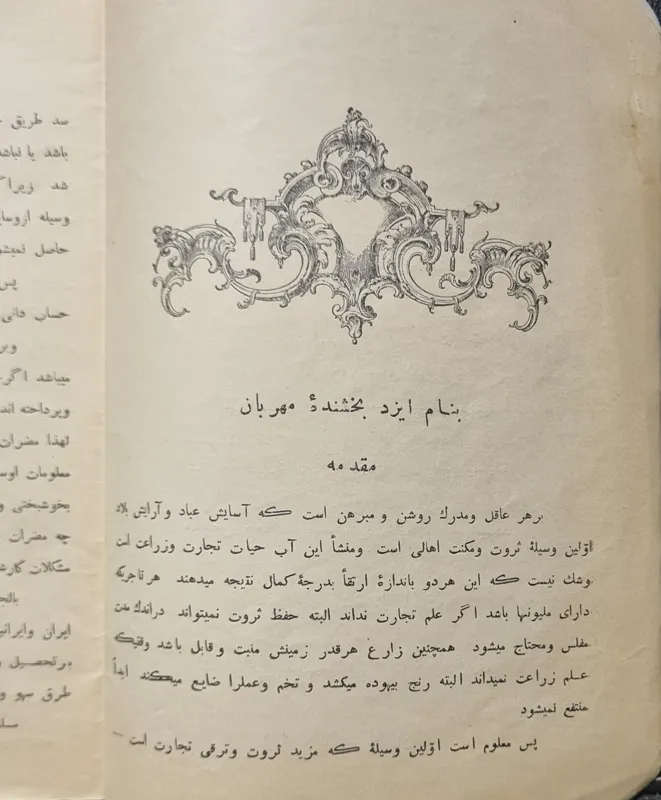 بنام ایزد بخشندهٔ مهربان
مقدمه
برهر عاقل ومدرك روشن و مبرهن است که آسایش عباد وآرایش بلاد
اوّلین وسیلهٔ ثروت ومکنت اهالی است ومنشأ این آب حیات تجارت وزراعت است
وشك نیست که این هردو باندازهٔ ارتقأ بدرجهٔ کمال نتیجه میدهند هر تاجریکه
دارای ملیونها باشد اگر علم تجارت نداند البته حفظ ثروت نمیتواند دراندك مدت
مفلس ومحتاج میشود همچنین زارع هرقدر زمینش منبت وقابل باشد وقتیکه
علم زراعت نمیداند البته رنج بیهوده میکشد و تخم وعملرا ضایع میکند ابداً
منتفع نمیشود
پس معلوم است اوّلین وسیلهٔ که مزید ثروت وترقی تجارت است —
سد طریق
باشد یا نباشد
شد زیرا
وسیله
حاصل
پس
حساب دانی
میباشد اگر
وپرداخته اند
لهذا مضرات
معلومات
بخوشبختی و
چه مضرات
مشکلات
ایران وایرانی
برتحصیل
طرق سهو و